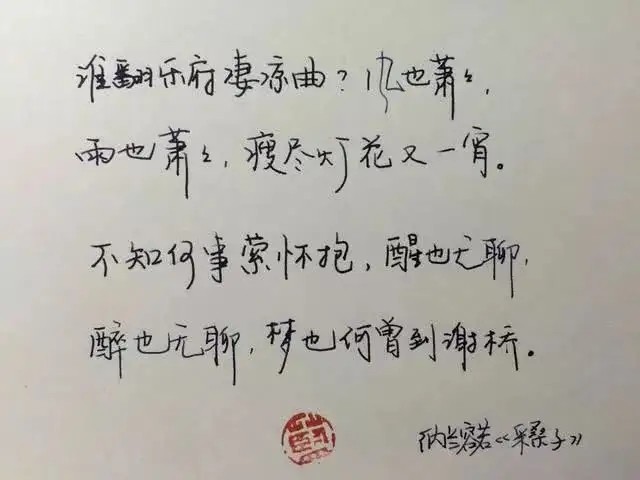 谁翻乐府凄凉曲?风也萧々,
雨也萧々,瘦尽灯花又一宵。
不知何事萦怀抱,醒也无聊,
醉也无聊,梦也何曾到谢桥。
纳兰容若《采桑子》